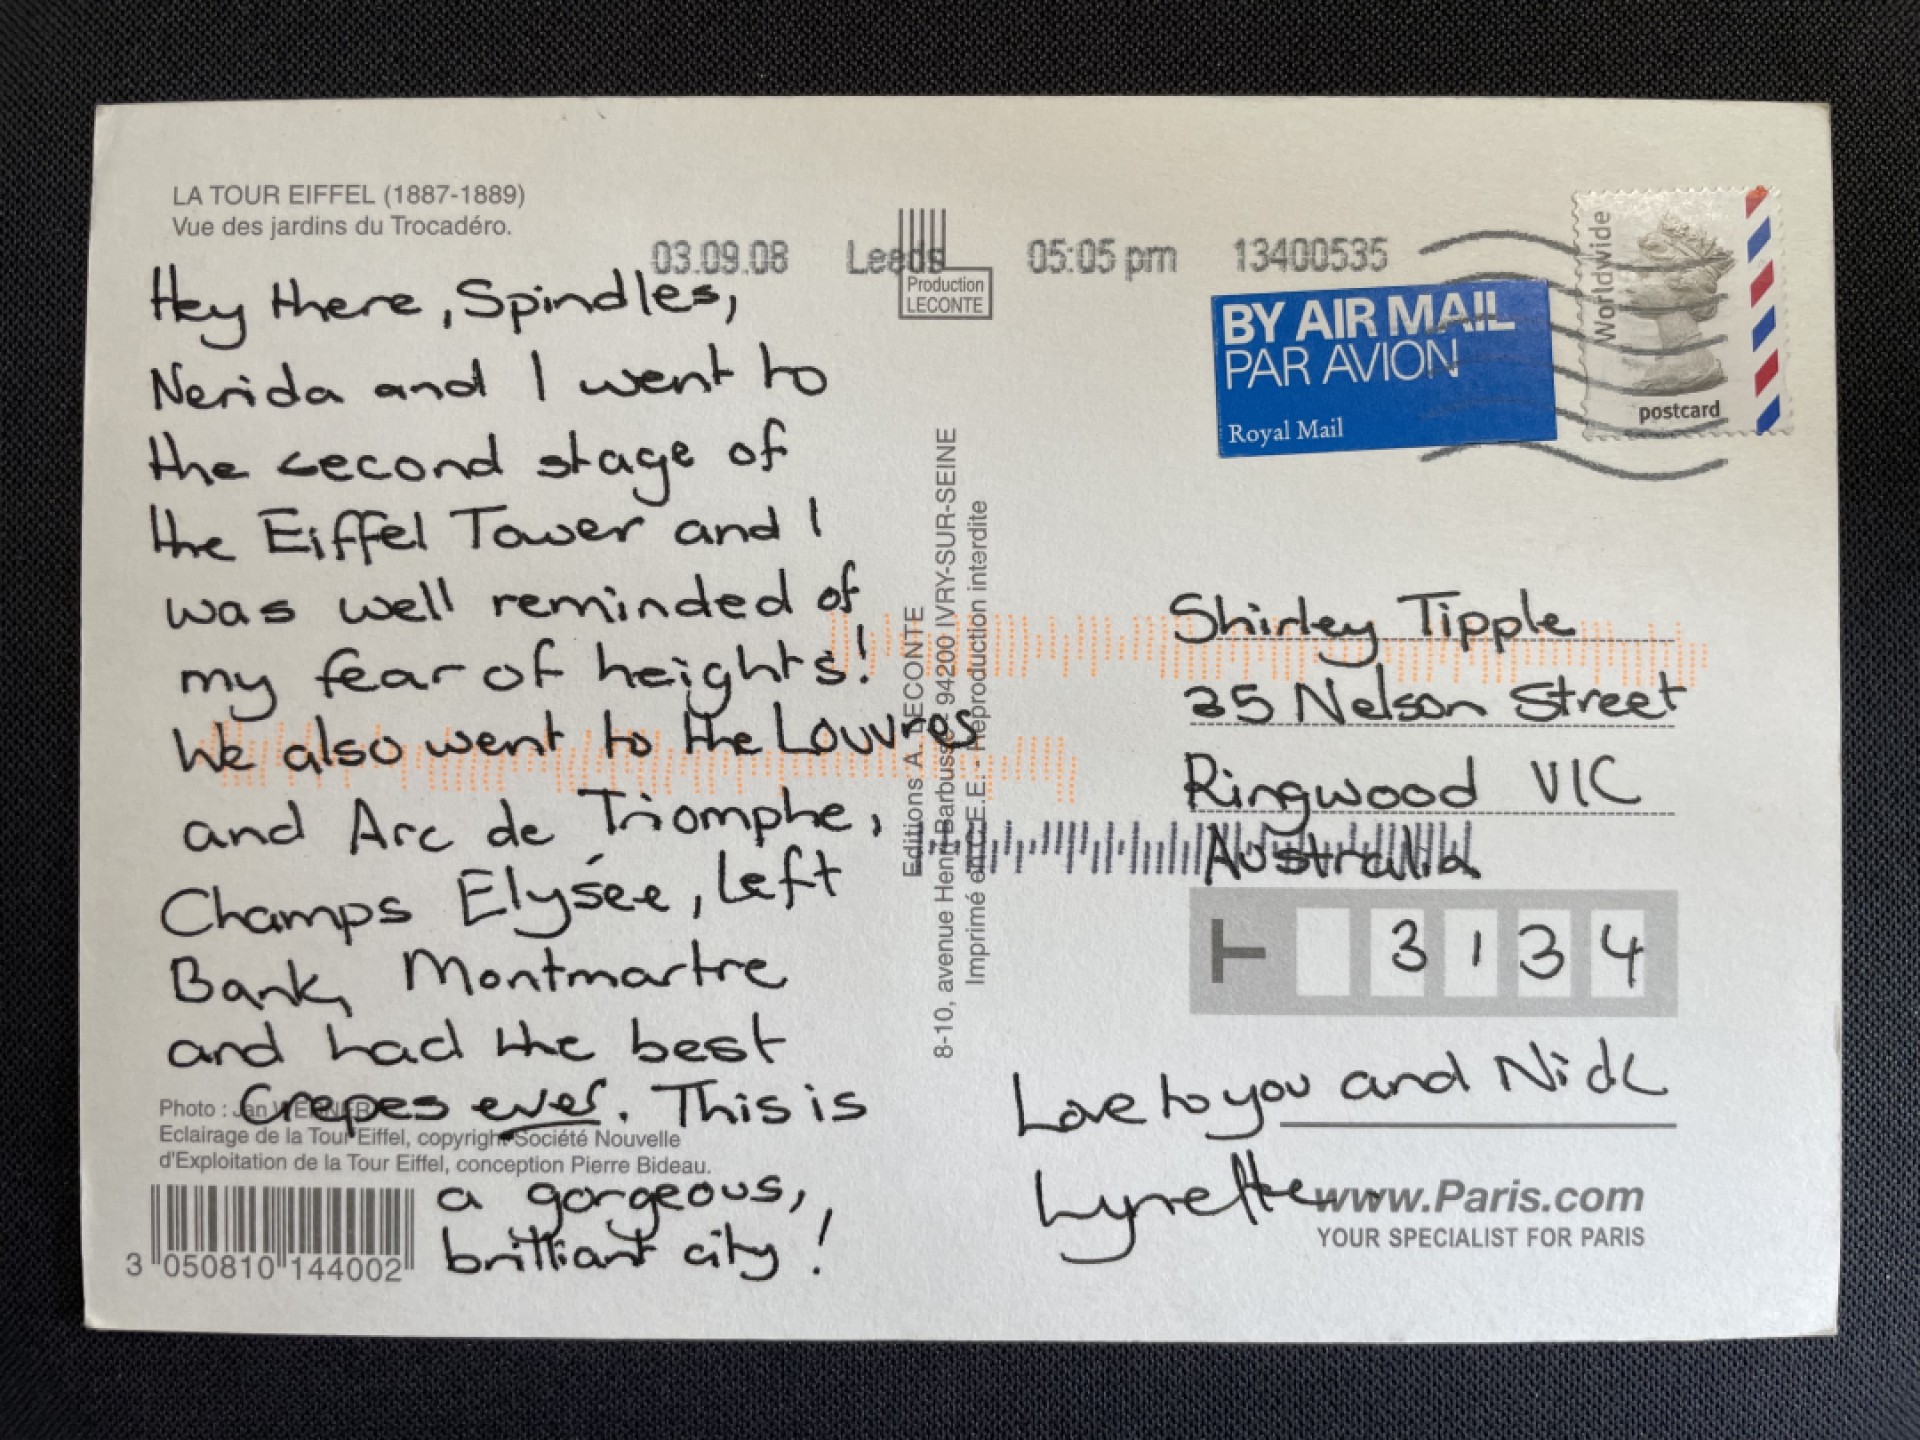 LA TOUR EIFFEL (1887-1889)
Vue des jardins du Trocadéro.
03.09.08 Leeds 05:05 pm 13400535
Production
LECONTE
BY AIR MAIL
PAR AVION
Royal Mail
Worldwide
postcard
Hey there, Spindles,
Nerida and I went to
the second stage of
the Eiffel Tower and I
was well reminded of
my fear of heights!
We also went to the Louvres
and Arc de Triomphe,
Champs Elysée, Left
Bank, Montmartre
and had the best
Crepes ever. This is
a gorgeous,
brilliant city!
Editions A. LECONTE
8-10, avenue Henri Barbusse 94200 IVRY-SUR-SEINE
Imprimé en C.E.E. - Reproduction interdite
Shirley Tipple
35 Nelson Street
Ringwood VIC
Australia
T 3 1 3 4
Love to you and Nick
Lynette
www.Paris.com
YOUR SPECIALIST FOR PARIS
Photo : Jan
Eclairage de la Tour Eiffel, copyright Société Nouvelle
d'Exploitation de la Tour Eiffel, conception Pierre Bideau.
3 050810 144002